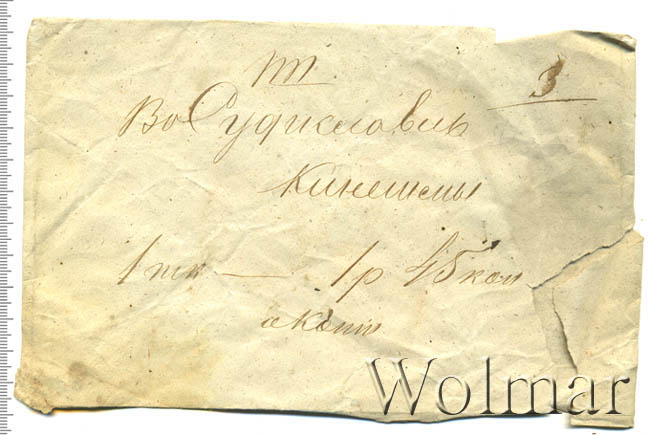 пп. 3
Во Судиславль
Кинешмы
1 пк — 1 р 45 коп
Wolmar